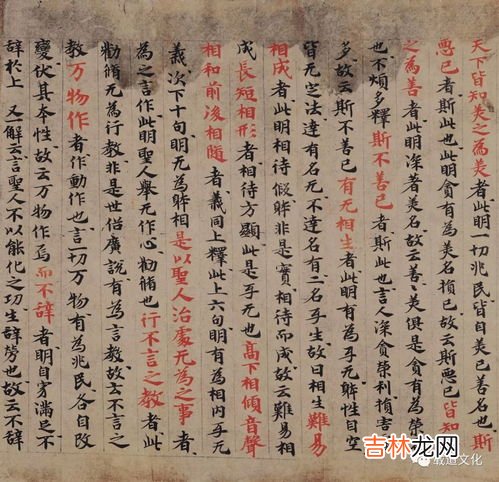 天下皆知美之為美者此明一切兆民自已善名也斯
惡已者斯此也此明貪有為美名損已故云斯惡已皆知
之為善者此明深著美名故云善〻美俱是貪有為榮
也不煩多釋斯不善已者斯此也言人深貪榮利損害
多故云斯不善已有无相生者此明有為互无躰性自空
皆无定法達有名无不達名有二名互生故曰相生難易
相成者此明相待假躰非是實相待而成故云難易相
成長短相形者相待方顯此是互无也高下相傾音聲
相和前後相隨者義同上釋此上六句明有為相内互无
義次下十句明无為躰相是以聖人治處无為之事者
為之言作此明聖人舉无作心勧脩也行不言之教者此
勧脩无為行教非是世俗廣說有為言教故云不言之
教万物作者作動作也言一切万物有為兆民各自改
變伏其本性故云万物作焉而不辞者明自穷滿足不
辞於上 又一解云言聖人不以能化之功生辞勞也故云不辞
吉林龙网
载道文化